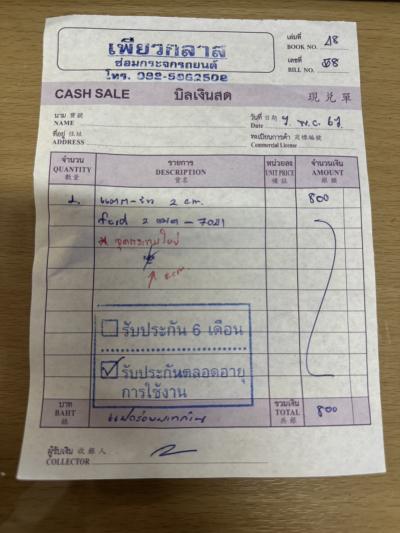 เพียวกลาส
ซ่อมกระจกรถยนต์
โทร. 092-5962502
เล่มที่ 18
BOOK NO.
เลขที่
BILL NO.
CASH SALE บิลเงินสด 現兑單
นาม 寶號
NAME
วันที่ 日期
Date
ที่อยู่ 住址
ADDRESS
ทะเบียนการค้า 商標編號
Commercial License
จำนวน รายการ หน่วยละ จำนวนเงิน
QUANTITY DESCRIPTION UNIT PRICE AMOUNT
數量 貨名 價註 銀額
1. แตก-ร้าว 2 cm. 800
ford 2 - 7021
cm
รับประกัน 6 เดือน
รับประกันตลอดอายุ
การใช้งาน
บาท รวมเงิน
BAHT TOTAL 800
銖 共銀
ผู้รับเงิน 收銀人
COLLECTOR